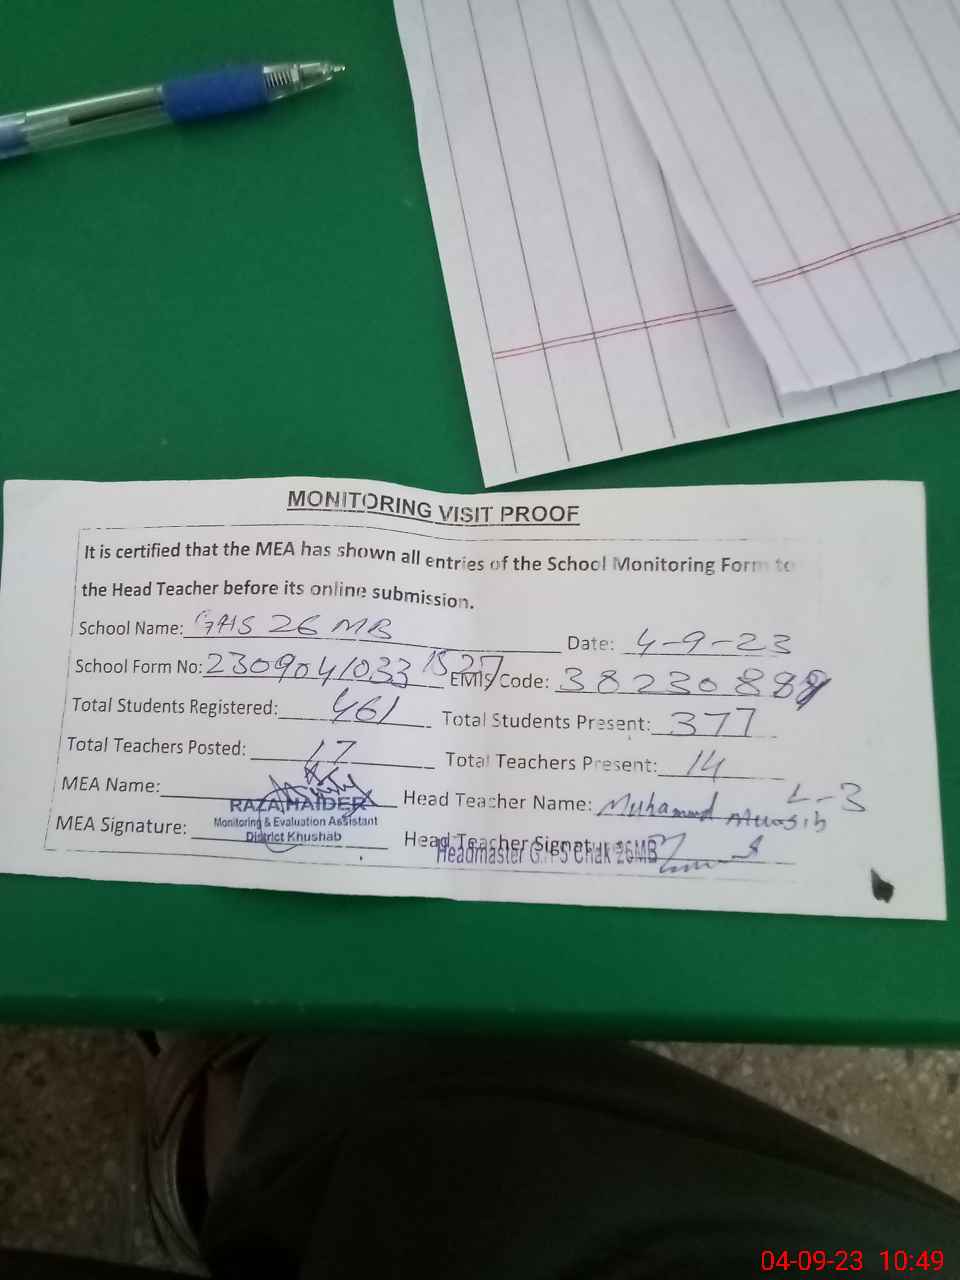 MONITORING VISIT PROOF
It is certified that the MEA has shown all entries of the School Monitoring Form to
the Head Teacher before its online submission.
School Name: GHS 26 MB Date: 4-9-23
School Form No: 2309041033 1527 EMIS Code: 38230889
Total Students Registered: 461 Total Students Present: 377
Total Teachers Posted: 17 Total Teachers Present: 14
L-3
MEA Name: Head Teacher Name: Muhammad
RAZA HAIDER
Monitoring & Evaluation Assistant
District Khushab
MEA Signature: Head Teacher Signature
Headmaster Chak 26MB
04-09-23 10:49